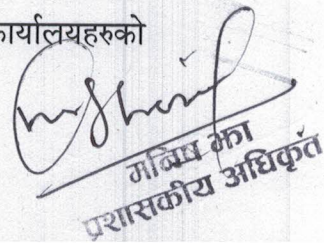 कार्यालयहरुको
मनिष झा
प्रशासकीय अधिकृत